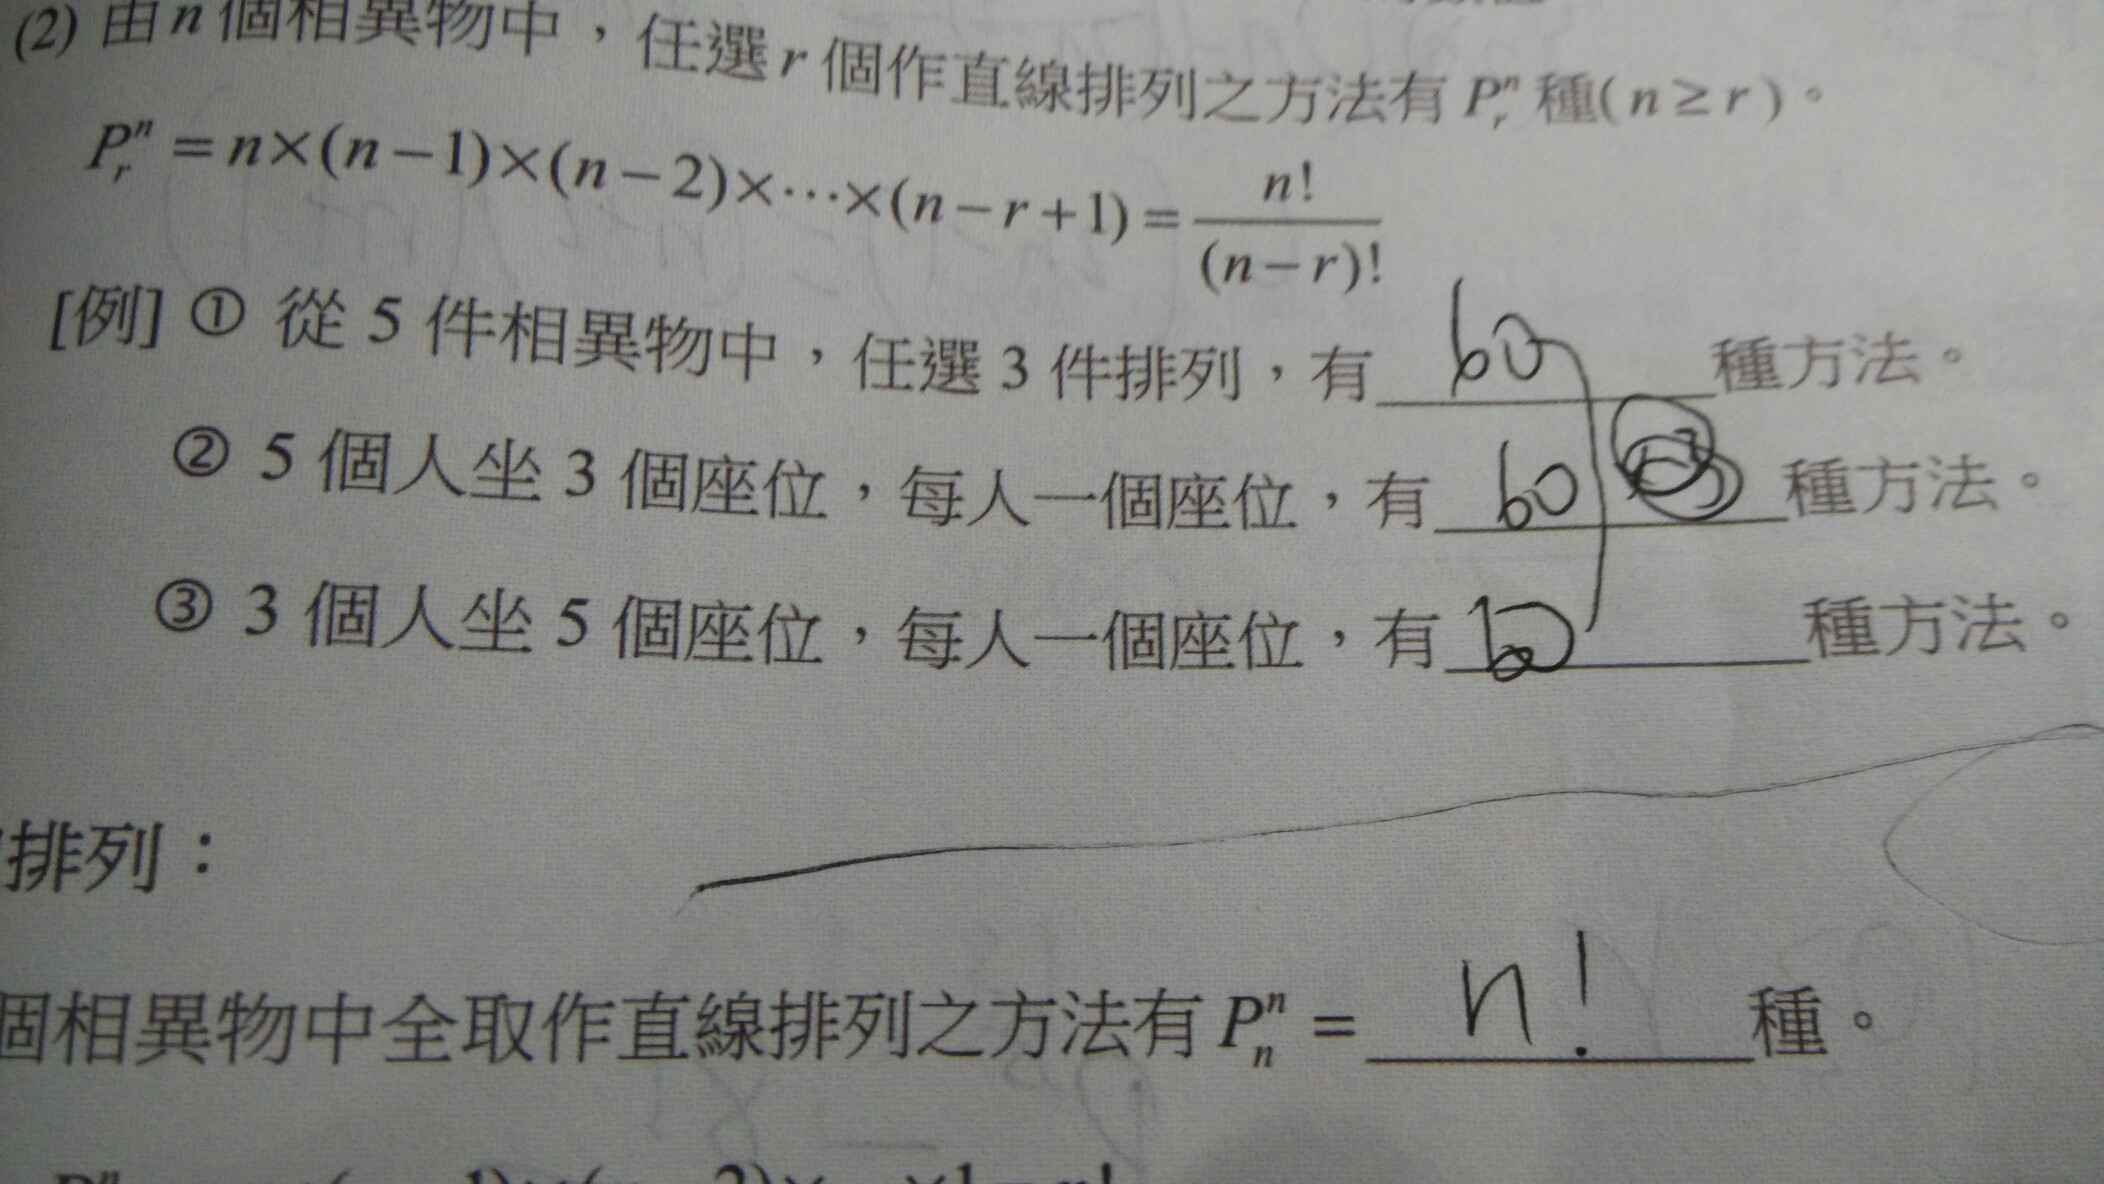 (2) 由 n 個相異物中，任選 r 個作直線排列之方法有 Pₙʳ 種( n ≥ r )。
Pₙʳ = n×(n−1)×(n−2)×⋯×(n−r+1) = n!/(n−r)!
[例] ① 從 5 件相異物中，任選 3 件排列，有 60 種方法。
② 5 個人坐 3 個座位，每人一個座位，有 60 種方法。
③ 3 個人坐 5 個座位，每人一個座位，有 60 種方法。
排列：
個相異物中全取作直線排列之方法有 Pₙⁿ = n! 種。